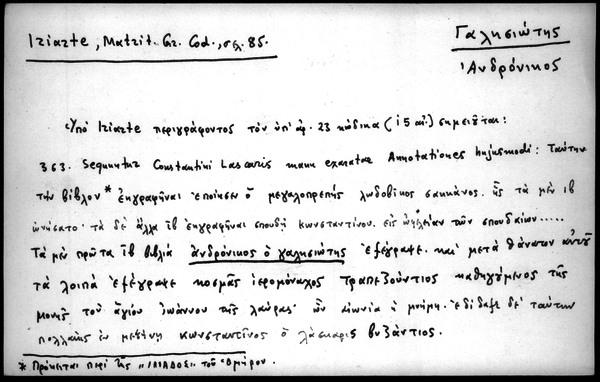 Iriarte, Matrit. Gr. Cod., σελ. 85.
Γαλησιώτης
Ἀνδρόνικος
Ὑπὸ Iriarte περιγράφοντος τὸν ὑπ' ἀρ. 23 κώδικα (15 αἰ.) σημειοῦται:
363. Sequuntur Constantini Lascaris manu exaratae Annotationes hujusmodi: Ταύτην
τὴν βίβλον * ἐκγραφῆναι ἐποίησεν ὁ μεγαλοπρεπὴς λυδοβῖκος σακκάνος. ἧς τὰ μὲν ιβ
ὠνήσατο· τὰ δὲ ἄλλα ιβ ἐκγραφῆναι σπουδῇ κωνσταντίνου. εἰς ὠφέλειαν τῶν σπουδαίων.....
Τὰ μὲν πρῶτα ιβ βιβλία ἀνδρόνικος ὁ γαλησιώτης ἐξέγραψε. καὶ μετὰ θάνατον αὐτοῦ
τὰ λοιπὰ ἐξέγραψε κοσμᾶς ἱερομόναχος τραπεζούντιος καθηγούμενος τῆς
μονῆς τοῦ ἁγίου ἰωάννου τῆς λαύρας· ὧν αἰωνία ἡ μνήμη. ἐδίδαξε δὲ ταύτην
πολλάκις ἐν μεσήνῃ κωνσταντῖνος ὁ λάσκαρις βυζάντιος.
* Πρόκειται περὶ τῆς "ΙΛΙΑΔΟΣ" τοῦ Ὁμήρου.